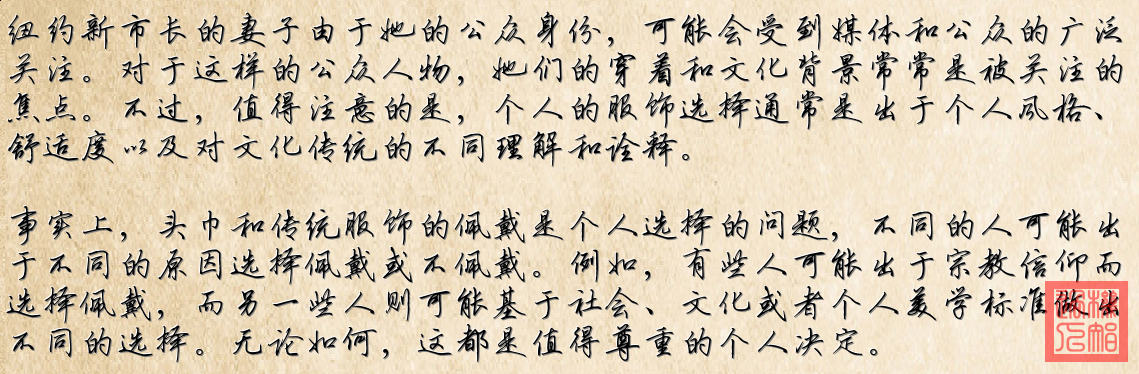 纽约新市长的妻子由于她的公众身份，可能会受到媒体和公众的广泛
关注。对于这样的公众人物，她们的穿着和文化背景常常是被关注的
焦点。不过，值得注意的是，个人的服饰选择通常是出于个人风格、
舒适度以及对文化传统的不同理解和诠释。
事实上，头巾和传统服饰的佩戴是个人选择的问题，不同的人可能出
于不同的原因选择佩戴或不佩戴。例如，有些人可能出于宗教信仰而
选择佩戴，而另一些人则可能基于社会、文化或者个人美学标准做出
不同的选择。无论如何，这都是值得尊重的个人决定。